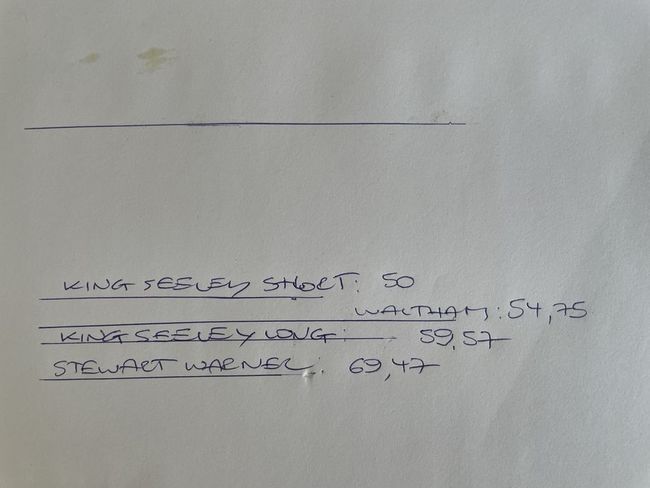 KING SEELEY SHORT: 50
WALTHAM: 54,75
KING SEELEY LONG: 59,57
STEWART WARNER: 69,47